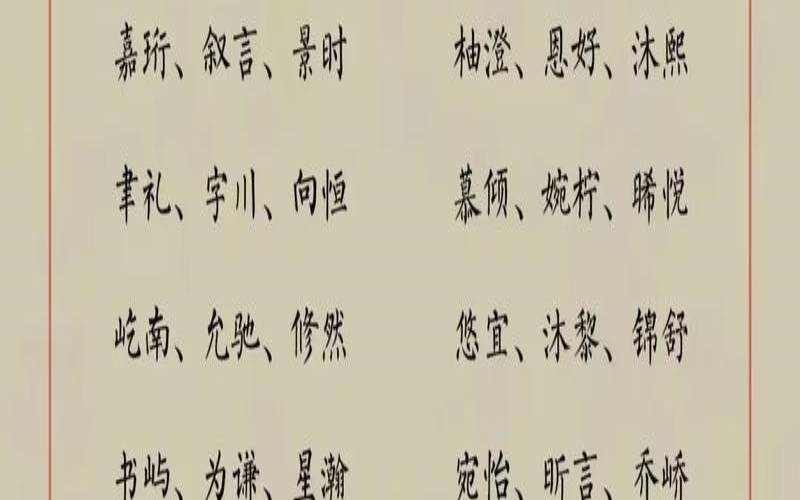 嘉珩、叙言、景时 柚澄、恩好、沐熙
聿礼、字川、向恒 慕倾、婉柠、晞悦
屹南、允驰、修然 悠宜、沐黎、锦舒
书屿、为谦、星瀚 宛怡、昕言、乔峤